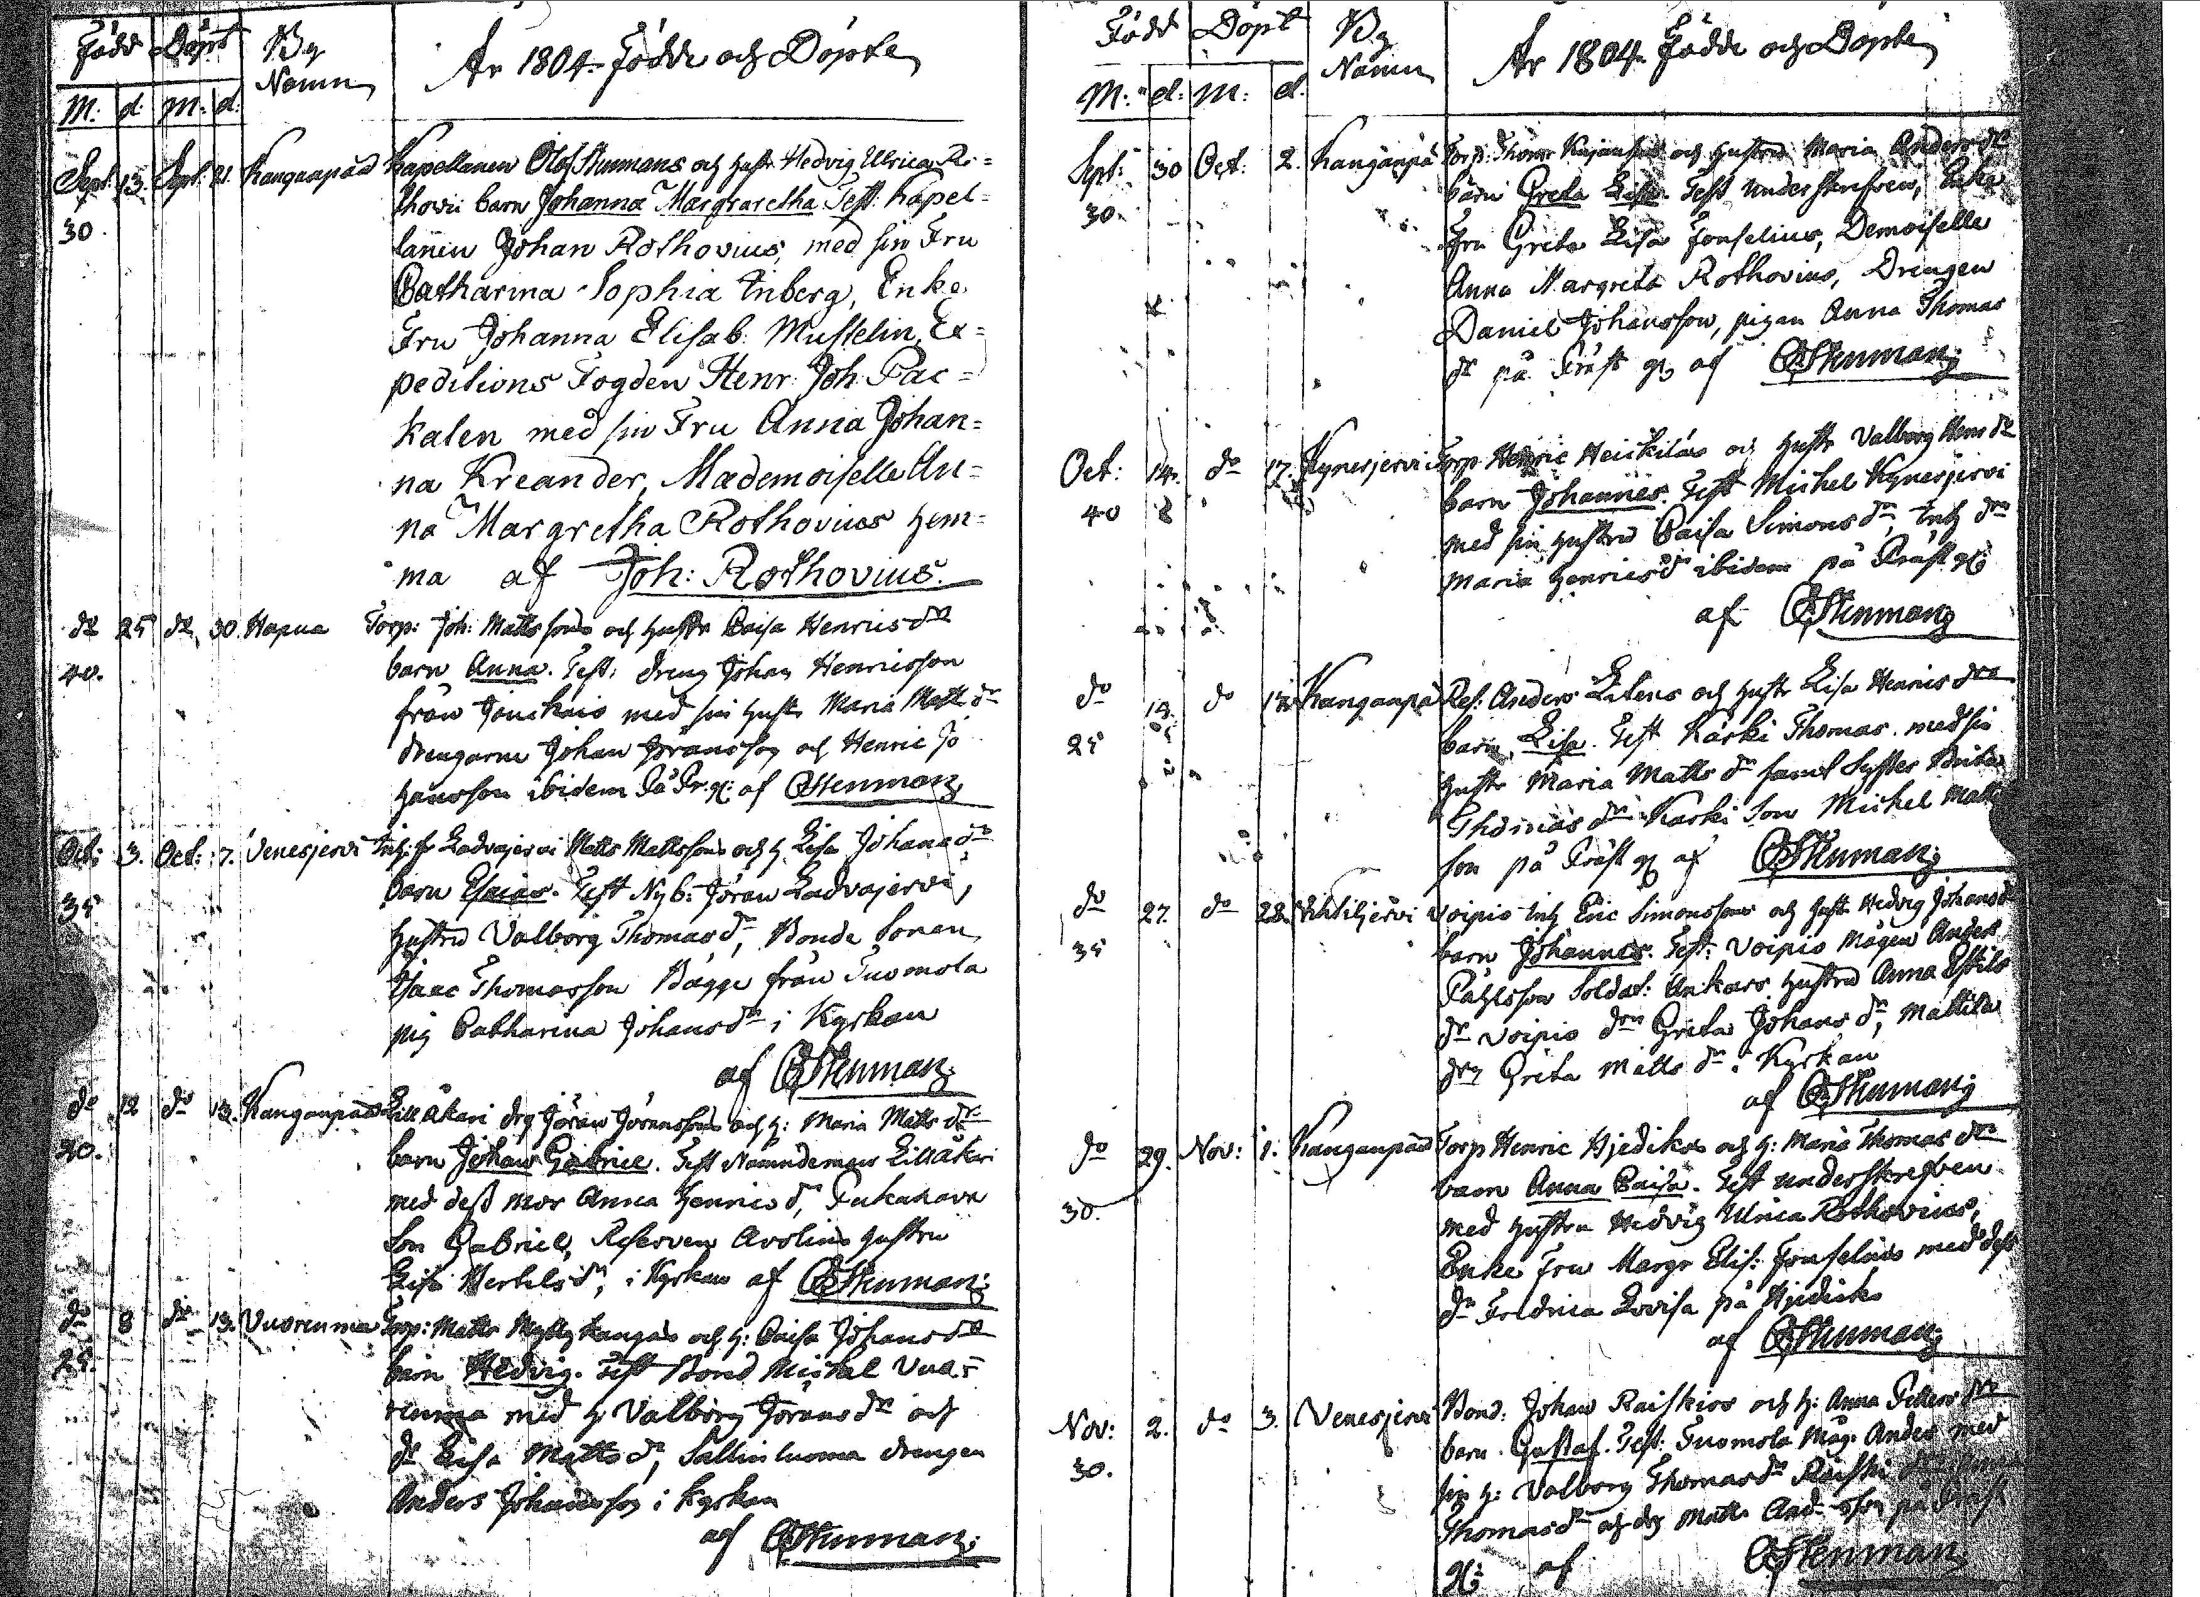 Född Döpt By Namn År 1804. Födde och Döpte
M: d: M: d:
Sept: 13. Sept: 21. Kanganpää Kapellanen Olof Stenmans och hustr Hedvig Ulrica Ro=
30. thovii barn Johanna Margraretha Test: Kapel=
lanen Johan Rothovius, med sin Fru
Catharina Sophia Inberg, Enke
Fru Johanna Elisab: Mustelin, Ex=
peditions Fogden Henr: Joh: Pac=
kalen med sin Fru Anna Johan=
na Kreander, Mademoiselle An=
na Margretha Rothovius hem=
ma af Joh: Rothovius.
do 25 do 30. Hapua Torp: Joh: Mattssons och hustr Caisa Henricsdr
40. barn Anna. Test: dreng Johan Henricsson
från med sin hustr Maria Mattsdr
drengarne Johan Jöransson och Henric Jo
hansson ibidem På Pr. g: af OStenman
Oct: 3. Oct: 7. Venesjervi Inh: fr Ladvajervi Matts Mattssons och h. Lisa Johansdr
35 barn Esaias. Test Nyb: Jöran Ladvajervi,
hustru Valborg Thomasdr, Bonde Sonen
Isaac Thomasson Bagge från Tuomola
pig Catharina Johansdr i Kyrkan
af OStenman
do 12 do 13. Kanganpää Lilläkari drg Jöran Jöranssons och h: Maria Mattsdr
20. barn Johan Gabriel. Test Nämndeman Lilläkari
med dess mor Anna Henricsdr,
Son Gabriel, Reserven Avolins hustru
Lisa dr, i Kyrkan af OStenman
do 8 do 13. Vuorenma Torp: Matts kangas och h: Caisa Johansdr
25. barn Hedvig. Test Bond Michel Vuo=
renma med h Valborg Jöransdr och
dr Lisa Mattsdr, Sallinluoma drengen
Anders Johansson i Kyrkan
af OStenman
Född Döpt By Namn År 1804. Födde och Döpte
M: d: M: d.
Sept: 30 Oct: 2. Kanganpä Torp: Thomas och hustru Maria Andersdr
30. barn Greta Lisa. Test underskrefven, Enke
Fru Greta Lisa Fonselius, Demoiselle
Anna Margreta Rothovius, Drengen
Daniel Johansson, pigan Anna Thomas
dr på Präst g: af OStenman
Oct: 14. do 17. Kynesjervi Torp Henric Heickiläs och hustr Valborg Henrdr
40 barn Johannes. Test Michel Kynesjervi
med sin hustru Caisa Simonsdr, Inh drn
Maria Henricsdr ibidem på Präst g:
af OStenman
do do Kanganpä Res: Anders och hustr Lisa Henricsdr
25 barn Lisa. Test Karki Thomas med sin
hustr Maria Mattsdr samt Syster Brita
Thomasdr Karki Son Michel Matts
son på Präst g: af OStenman
do 27. do 28. Vihtiljervi Voipio Inh Eric Simonssons och hustr Hedvig Johansdr
35 barn Johannes. Test: Voipio Mågen Anders
Påhlsson Soldat: Ankars hustru Anna Eskils
dr Voipio drn Greta Johansdr, Mattila
drn Greta Mattsdr i Kyrkan
af OStenman
do 29. Nov: 1. Kanganpää Torp Henric Hjediks och h: Maria Thomasdr
30. barn Anna Caisa. Test underskrefven
med hustru Hedvig Ulrica Rothovius,
Enke Fru Margr Elis: Fonselius med dess
dr Fredrica Lovisa på Hjediks
af OStenman
Nov: 2. do 3. Venesjervi Bond: Johan Raiskios och h: Anna dr
30. barn Gustaf. Test: Tuomola Måg Anders med
sin h: Valborg Thomasdr Raiski
Thomasdr och drg Matts på Präst
g: af OStenman